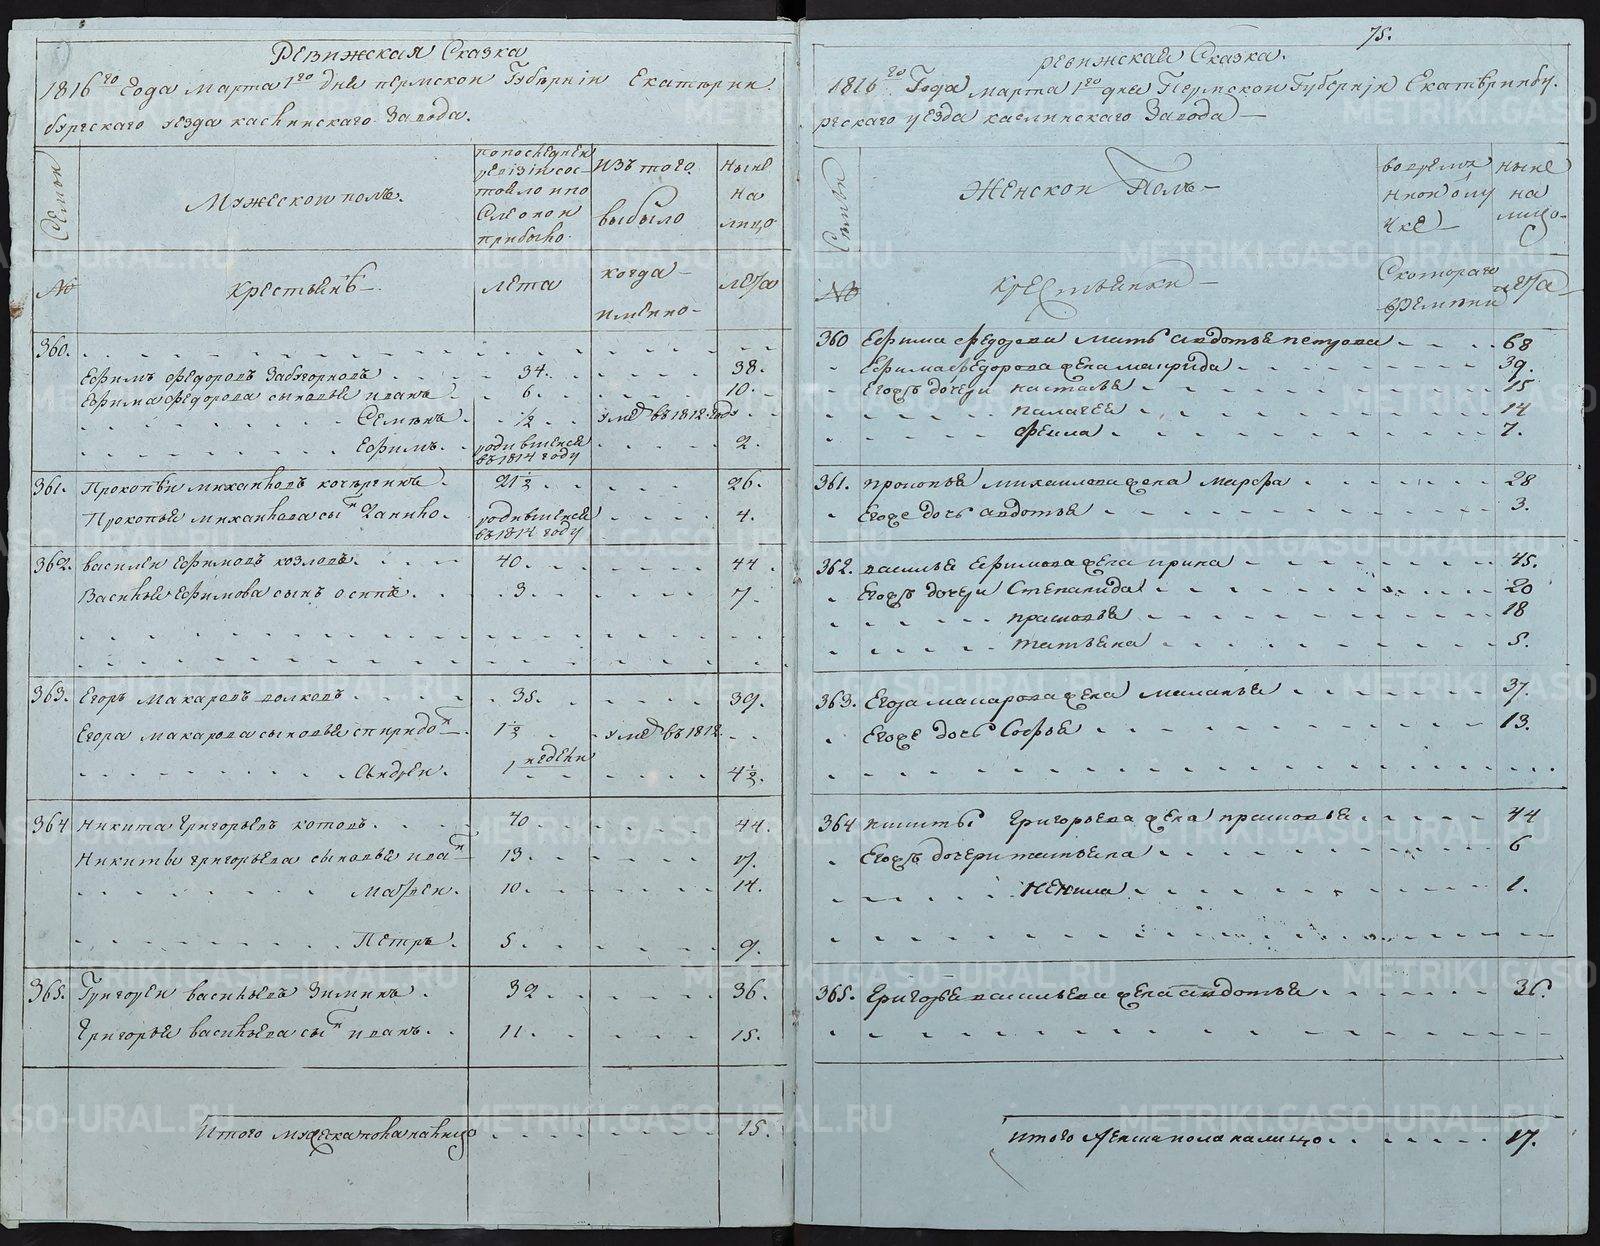 Ревижская Сказка
1816го Года марта 1го дня пермской Губернiи Екатерин
бургского уезда каслинского Завода.
Семьи
Мужескои полъ.
попоследнеи
ревiзiи сос-
тояло ипо
сле онои
прибыло
Изъ того
выбыло
Ныне
на
лицо
№
крестьянъ
лета
когда
имянно
лета
360.
Ефимъ Федоровъ Забугорновъ 34. 38.
Ефима Федорова сыновья иванъ 6. 10.
Семенъ 1/2 умре въ 1812 году
Ефимъ. родившейся
въ 1814 году 2.
361. Прокопей михаиловъ 21 1/2 26.
Прокопья михаилова сынъ Данило. родившейся
въ 1814 году 4.
362. василеи Ефимовъ козловъ 40. 44.
Василья Ефимова сынъ осипъ. 3. 7.
363. Егоръ макаровъ волковъ 35. 39.
Егора макарова сыновья спиридонъ 1 1/2 умре въ 1812
Андреи. 1 недели 4 1/2.
364 Никита григорьевъ котовъ. 40 44.
Никиты григорьева сыновья иванъ 13. 17.
Матвеи. 10. 14.
Петръ. 5. 9.
365. Григореи васильевъ Зиминъ. 32 36.
Григорья васильева сынъ иванъ. 11. 15.
Итого мужеска пола налицо 15.
75.
ревижская Сказка.
1816го Года марта 1го дня Пермской Губернiи Екатеринбу.
ргского уезда каслинского Завода
Семьи
Женскои Полъ
вовремяннои отлу
чке
ныне
на
лицо
№
крестьянки
Скотораго
времяни
лета
360 Ефима федорова мать авдотья петрова 68
Ефима Федорова жена маврида 39.
Егожъ дочери настасья 15
палагея 14
фекла 7.
361. прокопья михаилова жена марфа 28
Егоже дочь авдотья 3.
362. василья Ефимова жена ирина 45.
Егожъ дочери Степанида 20
прасковья 18
татьяна 5.
363. Егора макарова жена маланья 37.
Егоже дочь Софья 13.
364 никиты Григорьева жена прасковья 44
Егожъ дочери татьяна 6
ненила 1.
365. Григорья васильева жена авдотья 36.
итого женска пола налицо 17.
METRIKI.GASO-URAL.RU